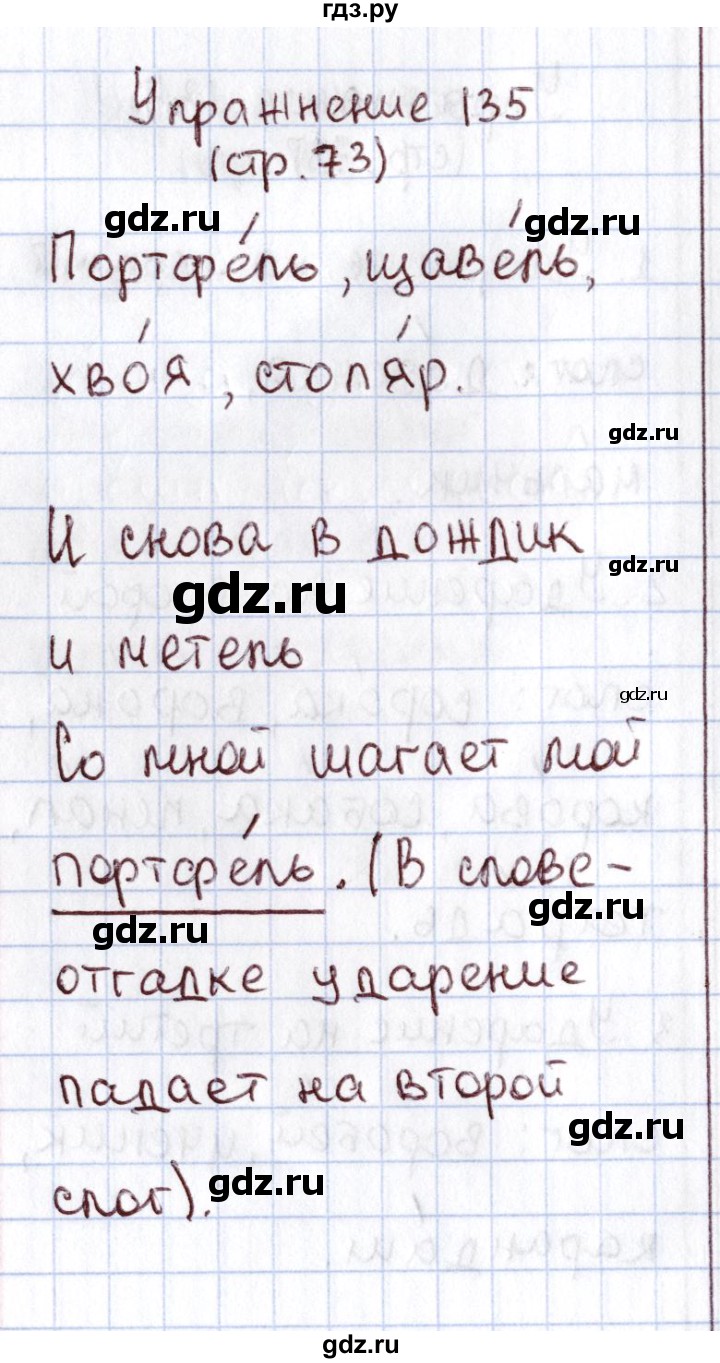 гдз.ру
Упражнение 135
(стр. 73)
gdz.ru
gdz.ru
Портфе́ль, щаве́ль,
хво́я, столя́р.
gdz.ru
И снова в дождик
gdz.ru
gdz.ru
и метель
gdz.ru
Со мной шагает мой
портфе́ль. (В слове-
gdz.ru
gdz.ru
отгадке ударение
падает на второй
gdz.ru
слог).
gdz.ru
gdz.ru